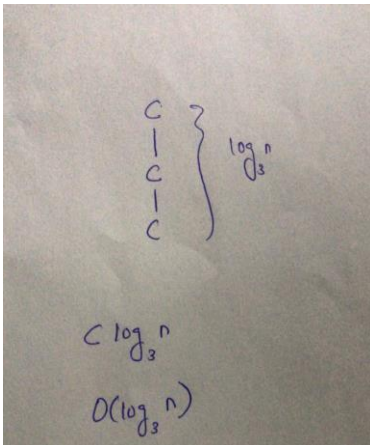 C
C
C
log₃ n
C log₃ n
O(log₃ n)